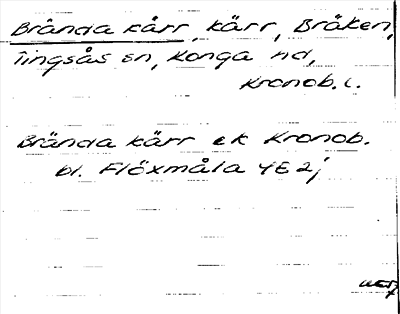 Brända kärr, kärr, Bråken,
Tingsås sn, Konga hd,
Kronob. l.
Brända kärr ek Kronob.
bl. Flöxmåla 4E2j